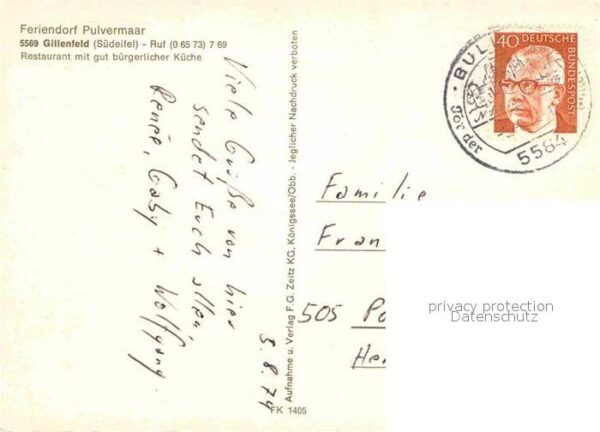 Feriendorf Pulvermaar
5569 Gillenfeld (Südeifel) - Ruf (0 65 73) 7 69
Restaurant mit gut bürgerlicher Küche
Viele Grüße von hier
sendet Euch allen,
Renée, Gaby + Wolfgang.
3.8.74
Aufnahme u. Verlag F.G. Zeitz KG, Königssee/Obb. - Jeglicher Nachdruck verboten
FK 1405
40 DEUTSCHE BUNDESPOST
BUL
Tor der
5584
Familie
Fran
505 Po
He
privacy protection
Datenschutz